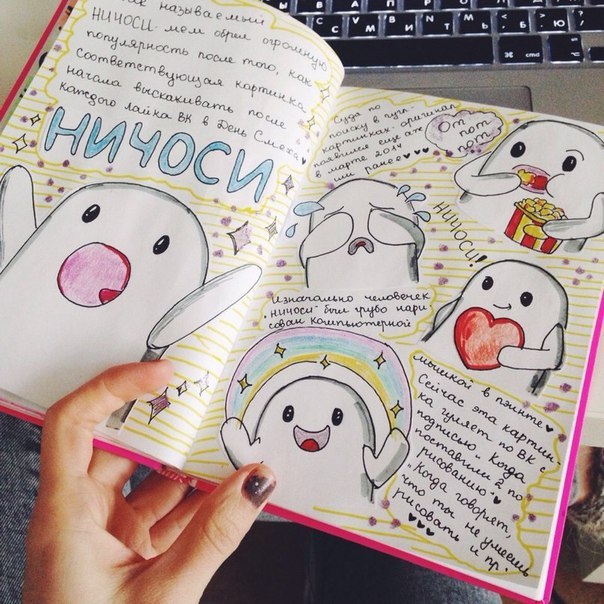 Так называемый
НИЧОСИ - мем обрел огромную
популярность после того, как
соответствующая картинка
начала выскакивать после
каждого лайка ВК в День Смеха.
НИЧОСИ
Судя по
поиску в гугл-
картинках, оригинал
появился ещё аж
в марте 2014
или ранее
От
пот
пот
НИЧОСИ!
Изначально человечек
"НИЧОСИ" был грубо нари
сован компьютерной
мышкой в пэинте
Сейчас эта картин
ка гуляет по ВК с
подписью "Когда
поставили 2 по
рисованию"
"Когда говорят,
что ты не умеешь
рисовать и пр.